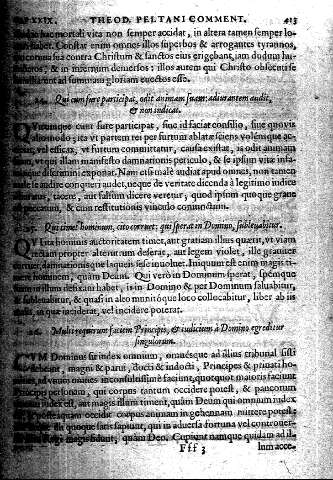 XXIX. THEOD. PELTANI COMMENT. 413
hac mortali vita non semper accidat, in altera tamen semper lo-
habet. Constat enim omnes illos superbos & arrogantes tyrannos,
sua contra Christum & sanctos eius erigebant, iam dudum hu-
& in infernum demersos: illos autem qui Christo
ad summam gloriam euectos esse.
24. Qui cum fure participat, odit animam suam: adiurantem audit,
& non indicat.
cum fure participat, siue id faciat consilio, siue quouis
modo; ita vt partem rei per furtum ablatæ sciens volensque ac-
vel efficax, vt furtum committatur, causa existat, is odit animam
vt qui illam manifesto damnationis periculo, & se ipsum vitæ infa-
discrimini exponat. Nam etsi male audiat apud omnes, non tamen
se audire conqueri audet, neque de veritate dicenda à legitimo iudice
tacere, aut falsum dicere veretur; quod ipsum quoque graue
peccatum, & cum restitutionis vinculo coniunctum.
25. Qui timet hominem, cito corruet: qui sperat in Domino, subleuabitur.
hominis auctoritatem timet, aut gratiam illius quærit, vt viam
propter alterutrum deferat, aut legem violet, ille grauiter
damnationisque
hominem, quam Deum. Qui verò in Dominum sperat, spemque
in illum defixam habet, is in Domino & per Dominum saluabitur,
subleuabitur, & quasi in alto munitóque loco collocabitur, liber ab iis
in quæ inciderat, vel incidere poterat.
26. Multi requirunt faciem Principis, & iudicium à Domino egreditur
singulorum.
CVM Dominus sit index omnium, omnésque ad illius tribunal sisti
magni & parui, docti & indocti, Principes & priuati ho-
ad vnum omnes inconsultissimè faciunt, quotquot maioris faciunt
Principis personam, qui corpus tantum occidere potest, & paucorum
index est, aut magis illum timent, quàm Deum qui omnium index
postquam occidit corpus animam in gehennam mittere potest.
quoque satis sapiunt, qui in aduersa fortuna vel controuer-
magis fidunt, quàm Deo. Cupiunt namque quidam ad il-
Fff 3 lum acce-